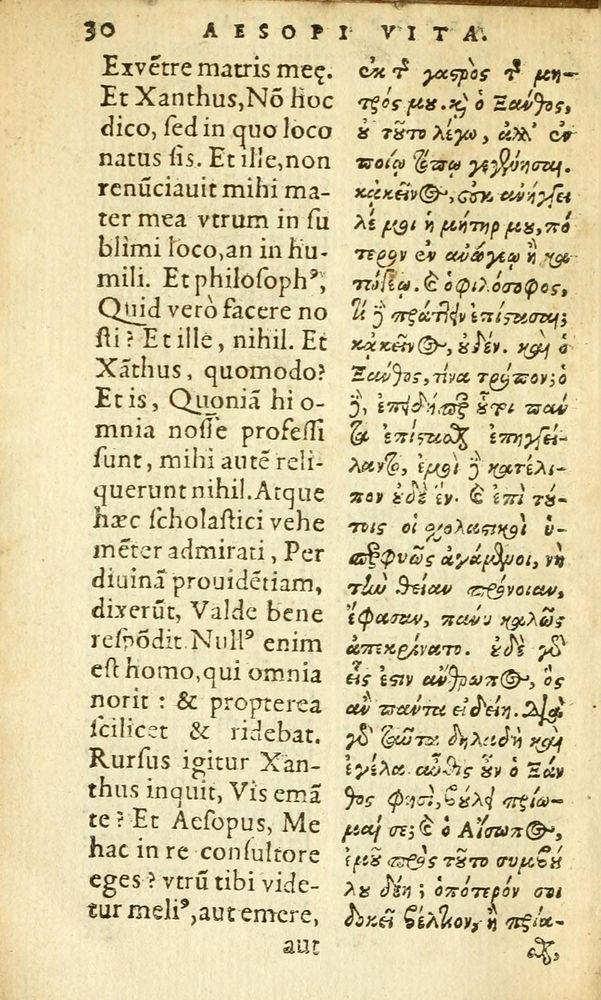 30 AESOPI VITA.
Exvẽtre matris meę.
Et Xanthus, Nõ hoc
dico, ſed in quo loco
natus ſis. Et ille, non
renũciauit mihi ma-
ter mea vtrum in ſu
blimi loco, an in hu-
mili. Et philoſophꝰ,
Quid verò facere no
ſti? Et ille, nihil. Et
Xãthus, quomodo?
Et is, Quoniã hi o-
mnia noſſe profeſſi
ſunt, mihi autẽ reli-
querunt nihil. Atque
hæc ſcholaſtici vehe
mẽter admirati, Per
diuinã prouidẽtiam,
dixerũt, Valde bene
reſpõdit. Nullꝰ enim
eſt homo, qui omnia
norit : & propterea
ſcilicet & ridebat.
Rurſus igitur Xan-
thus inquit, Vis emã
te? Et Aeſopus, Me
hac in re conſultore
eges? vtrũ tibi vide-
tur meliꝰ, aut emere,
aut
ἐκ τῆς γαστρὸς τῆς μη-
τρός μου. καὶ ὁ Ξάνθος,
οὐ τοῦτο λέγω, ἀλλ' ἐν
ποίῳ τόπῳ γεγέννησαι.
κἀκεῖνος, οὐκ ἀνήγγει
λέ μοι ἡ μήτηρ μου, πό
τερον ἐν ἀνωγίῳ ἢ κα
τωγείῳ. καὶ ὁ φιλόσοφος,
τί δὲ πράττειν ἐπίστασαι;
κἀκεῖνος, οὐδέν. καὶ ὁ
Ξάνθος, τίνα τρόπον; ὁ
δέ, ἐπειδήπερ οὗτοι πάν
τα ἐπίστασθαι ἐπηγγεί-
λαντο, ἐμοὶ δὲ κατέλι-
πον οὐδὲ ἕν. καὶ ἐπὶ τού-
τοις οἱ σχολαστικοὶ ὑ-
περφυῶς ἀγάμενοι, νὴ
τὴν θείαν πρόνοιαν,
ἔφασαν, πάνυ καλῶς
ἀπεκρίνατο. οὐδὲ γὰρ
εἷς ἐστιν ἄνθρωπος, ὃς
ἂν πάντα εἰδείη. Διὰ
γὰρ ταῦτα δηλαδὴ καὶ
ἐγέλα. αὖθις οὖν ὁ Ξάν
θος φησί, βούλει πρίω-
μαί σε; καὶ ὁ Αἴσωπος,
ἐμοῦ πρὸς τοῦτο συμβού
λου δέῃ; ὁπότερόν σοι
δοκεῖ βέλτιον, ἢ πρία-
σθαι,